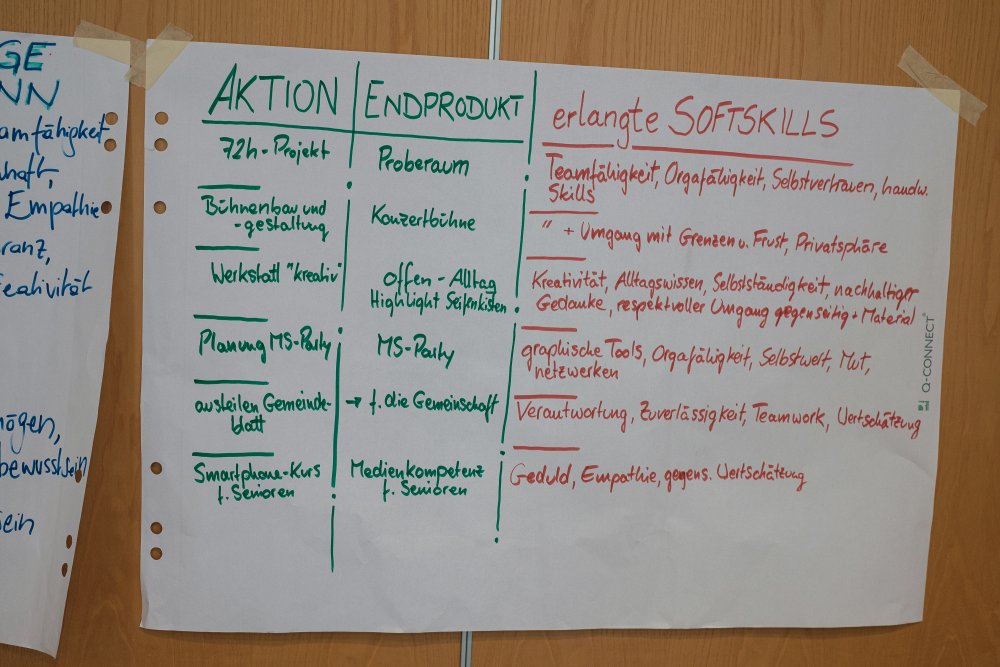 GE
NN
amfähigkeit
haft,
Empathie
ranz,
eativität
mögen,
bewusstsein
sein
AKTION ENDPRODUKT erlangte SOFTSKILLS
72h-Projekt Proberaum Teamfähigkeit, Orgafähigkeit, Selbstvertrauen, handw.
Skills
Bühnenbau und Konzertbühne " + Umgang mit Grenzen u. Frust, Privatsphäre
-gestaltung
Werkstatt "kreativ" offen - Alltag Kreativität, Alltagswissen, Selbstständigkeit, nachhaltiger
Highlight Seifenkisten Gedanke, respektvoller Umgang gegenseitig + Material
Planung MS-Party MS-Party graphische Tools, Orgafähigkeit, Selbstwert, Mut,
netzwerken
austeilen Gemeinde- → f. die Gemeinschaft Verantwortung, Zuverlässigkeit, Teamwork, Wertschätzung
blatt
Smartphone-Kurs Medienkompetenz Geduld, Empathie, gegens. Wertschätzung
f. Senioren f. Senioren
Q-CONNECT